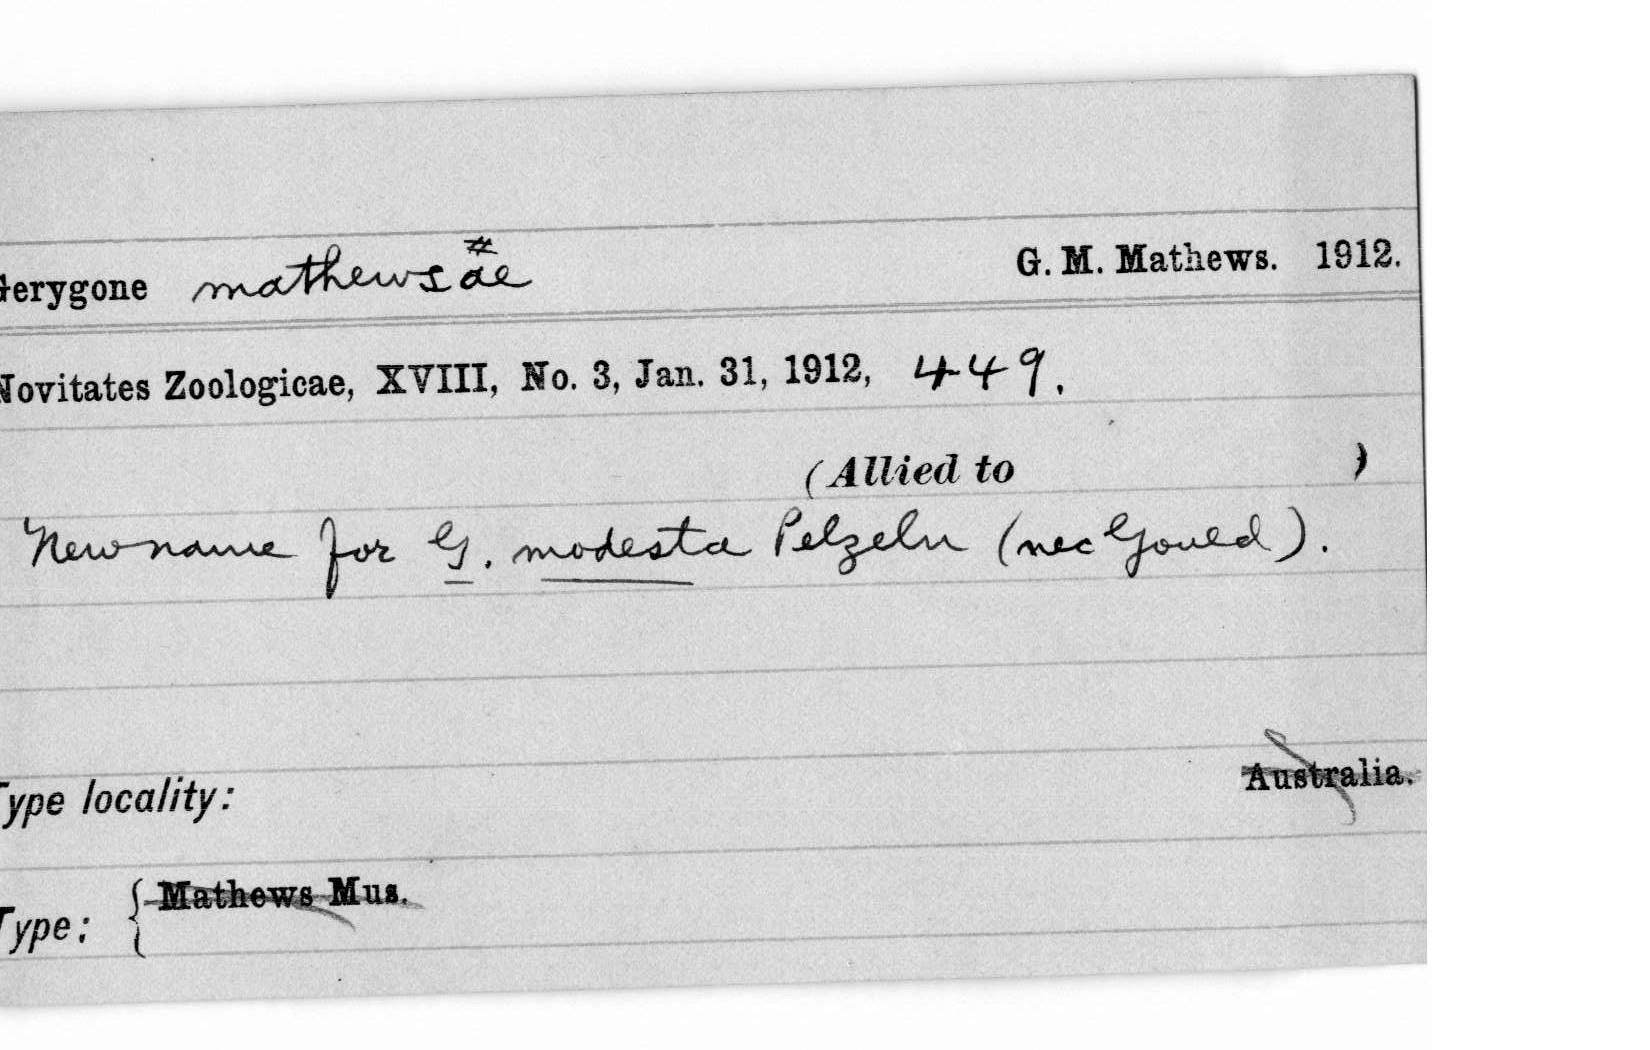 Gerygone mathewsae # G. M. Mathews. 1912.
Novitates Zoologicae, XVIII, No. 3, Jan. 31, 1912, 449.
(Allied to )
New name for G. modesta Pelzeln (nec Gould).
Type locality: Australia.
Type: { Mathews Mus.